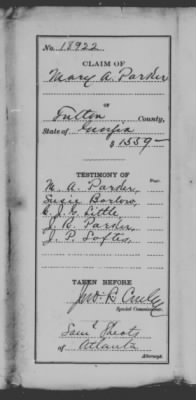 No. 18922
CLAIM OF
Mary A. Parker
OF
Fulton County,
State of Georgia
$ 1559-
TESTIMONY OF
Page.
M. A. Parker,
Susie Barlow,
J. G. Little
J. K. Parker,
J. P. Loftis,
TAKEN BEFORE
Jno. B.
Special Commissioner.
Saml Sheats
of Atlanta
Attorney.